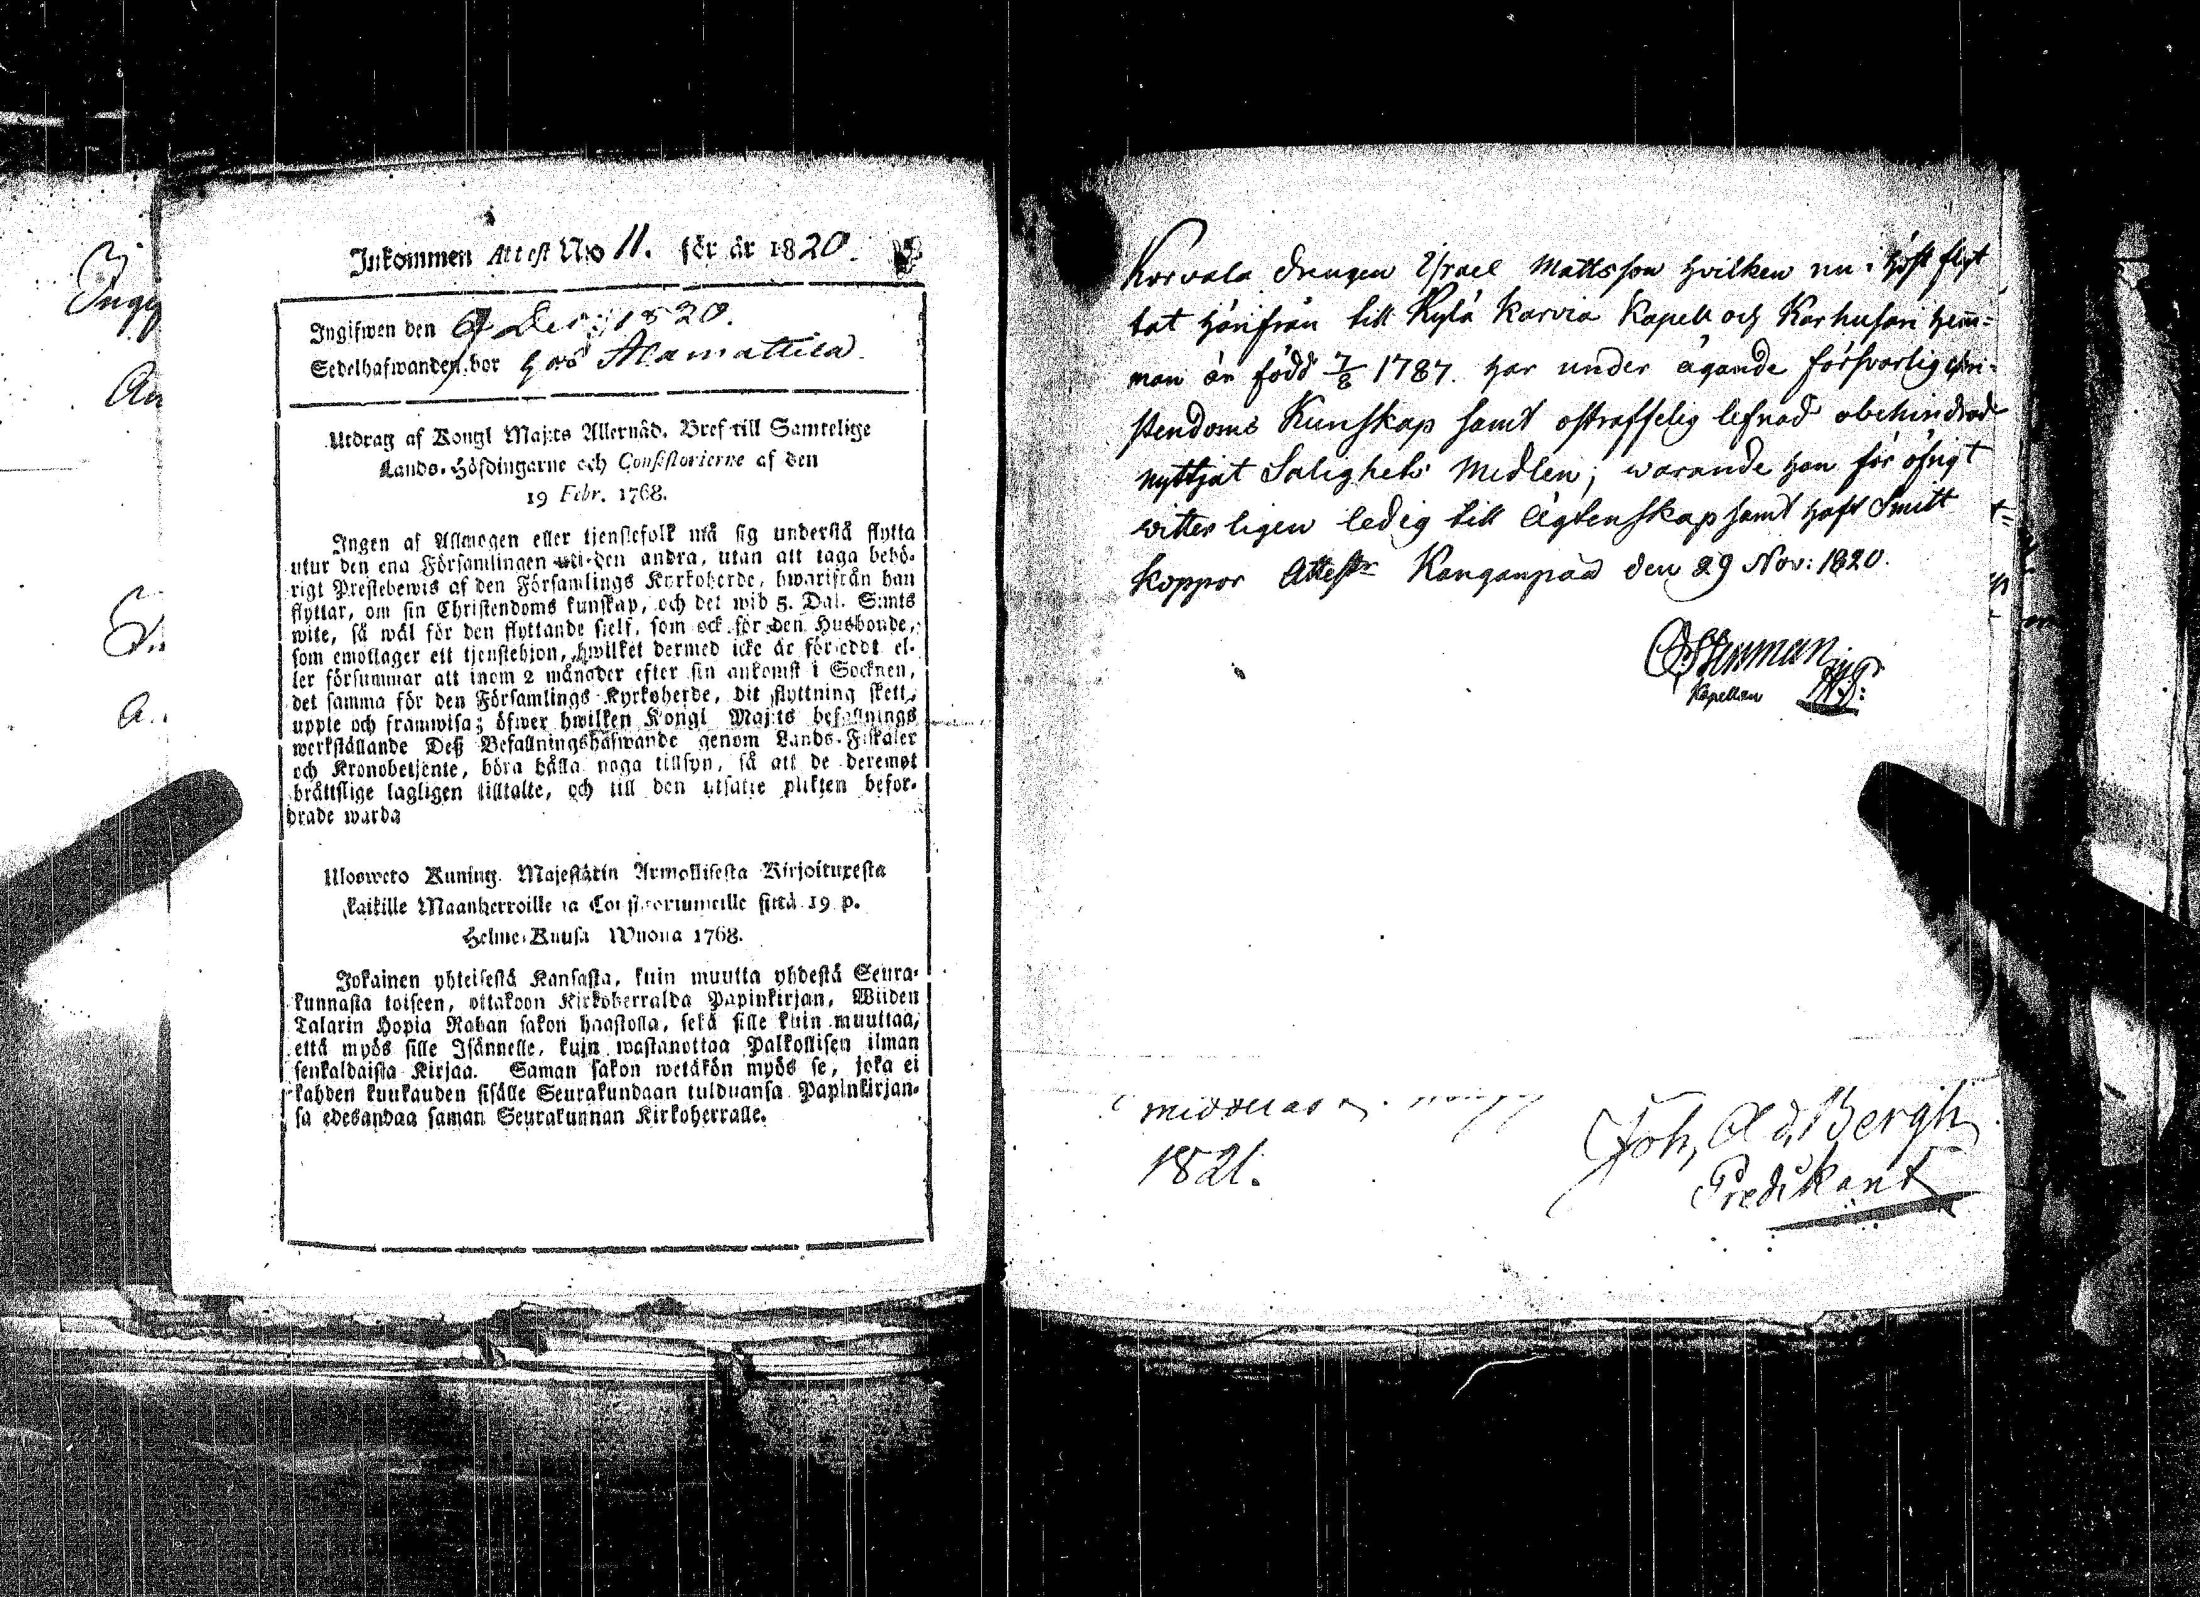 Inkommen Attest N:o 11. för år 1820.
Ingifwen den 9 Dec: 1820.
Sedelhafwanden bor hos Alamattila
Utdrag af Kongl Maj:ts Allernåd. Bref till Samtelige
Lands-Höfdingarne och Consistorierne af den
19 Febr. 1768.
Ingen af Allmogen eller tjenstefolk må sig understå flytta
utur den ena Församlingen uti den andra, utan att taga behö-
rigt Prestebewis af den Församlings Kyrkoherde, hwarifrån han
flyttar, om sin Christendoms kunskap, och det wid 5. Dal. S:mts
wite, så wäl för den flyttande sjelf, som ock för den Husbonde,
som emottager ett tjenstehjon, hwilket dermed icke är försedt el-
ler försummar att inom 2 månader efter sin ankomst i Socknen,
det samma för den Församlings Kyrkoherde, dit flyttning skett,
uppte och framwisa; öfwer hwilken Kongl Maj:ts befallnings
werkställande Deß Befallningshafwande genom Lands-Fiskaler
och Kronobetjente, böra hålla noga tillsyn, så att de deremot
bråttslige lagligen tilltalte, och till den utsatte plikten befor-
drade warda
Uloswето Kuning. Majestätin Armollisesta Kirjoituxesta
kaikille Maanherroille ja Consistoriumeille siitä 19 p.
Helme-Kuusa Wuona 1768.
Jokainen yhteisestä Kansasta, kuin muutta yhdestä Seura-
kunnasta toiseen, ottakoon Kirkoherralda Papinkirjan, Wiiden
Talarin Hopia Rahan sakon haastolla, sekä sille kuin muuttaa,
että myös sille Isännelle, kuin wastanottaa Palkollisen ilman
senkaldaista Kirjaa. Saman sakon wetäkön myös se, joka ei
kahden kuukauden sisälle Seurakundaan tulduansa Papinkirjan-
sa edesandaa saman Seurakunnan Kirkoherralle.
Korvala drengen Israel Mattsson hvilken nu i höst flyt
tat härifrån till Kylä Karvia Kapell och Karhusari hem=
man är född 7/8 1787. har under ägande försvarlig chri-
stendoms Kunskap samt ostraffelig lefnad obehindrad
nyttjat Salighets Medlen; warande han för öfrigt
witterligen ledig till Ägtenskap samt haft Smitt
koppor Attestr Kanganpää den 29 Nov: 1820.
Stenman
Kapellan
1821.
Joh, Ad, Bergh
Predikant